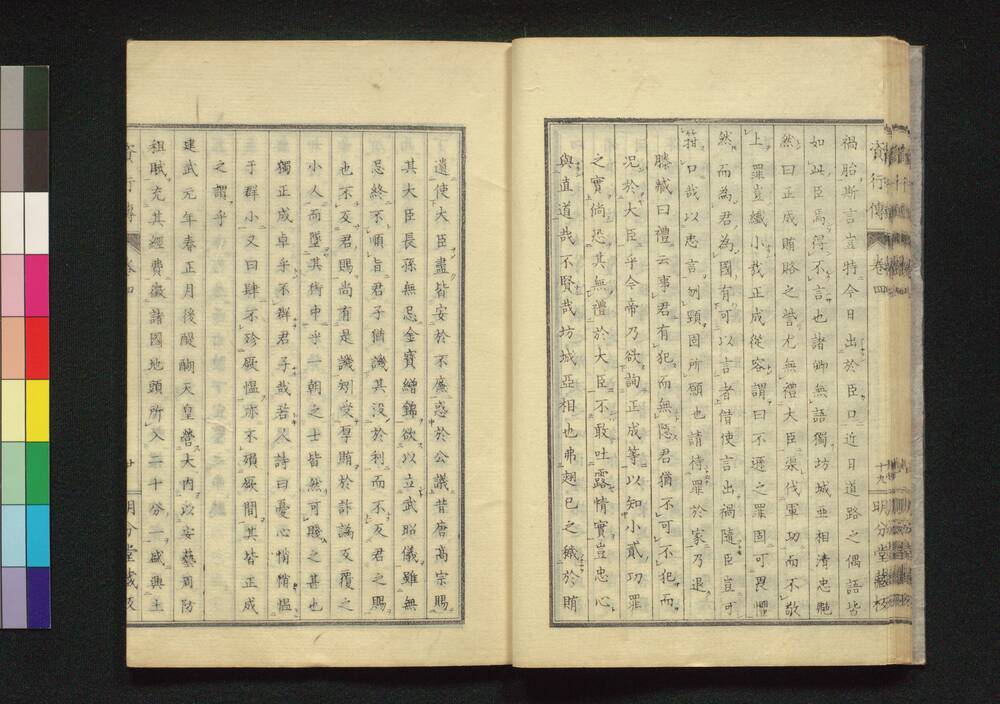 資行傳 卷四 十九 明分堂藏板
禍胎斯言豈特今日出於臣口近日道路之偶語皆
如此臣焉得不言也諸卿無語獨坊城亞相清忠艴
然曰正成賄賂之訾尤無禮大臣渠伐軍功而不敬
上罪豈纖小哉正成從容謂曰不遜之罪固可畏懼
然而為君為國有可以言者借使言出禍隨臣豈可
箝口哉以忠言刎頸固所願也請待罪於家乃退
滕臧曰禮云事君有犯而無隱君猶不可不犯而
況於大臣乎今帝乃欲詢正成等以知小貳功罪
之實倘恐其無禮於大臣不敢吐露情實豈忠心
與直道哉不賢哉坊城亞相也弗翅已之鍼於賄
遺使大臣盡皆安於不廉惑於公議昔唐高宗賜
其大臣長孫無忌金寶繒錦欲以立武昭儀雖無
忌終不順旨君子猶譏其沒於利而不反君之賜
也不反君賜尚有是譏矧受厚賄於訴訟反覆之
小人而墮其術中乎一朝之士皆然可賤之甚也
獨正成卓乎不群君子哉若人詩曰憂心悄悄慍
于群小又曰肆不殄厥慍亦不殞厥問其皆正成
之謂乎
建武元年春正月後醍醐天皇營大內以安藝周防
租賦充其經費徵諸國地頭所入二十分一盛興土
資行傳 卷四 廿 明分堂藏板